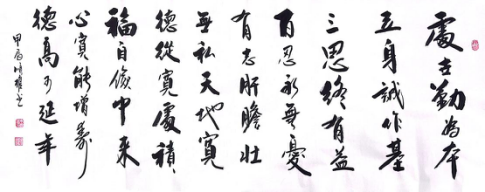 處世勤為本
立身誠作基
三思終有益
百忍永無憂
有志肝膽壯
無私天地寬
德從寬處積
福自儉中來
心寬能增壽
德高可延年